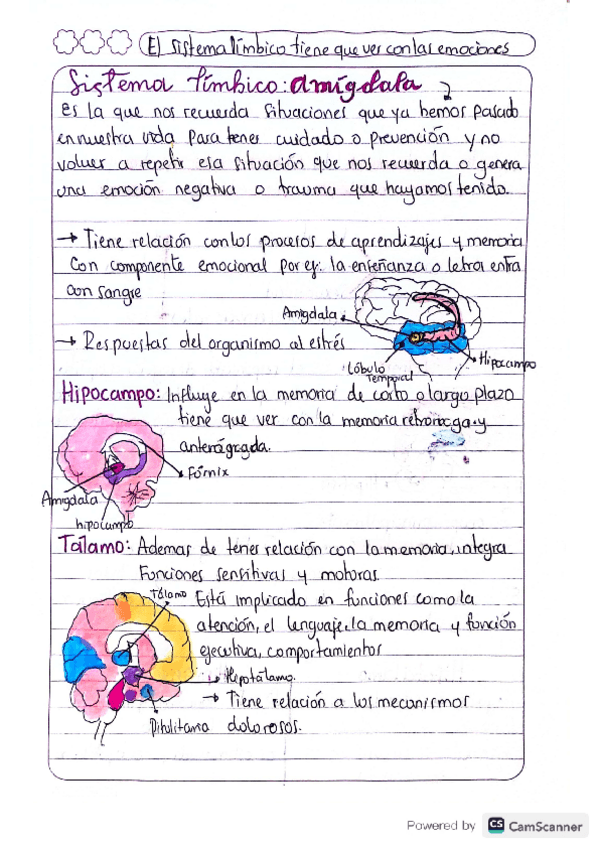 El sistema límbico tiene que ver con las emociones
Sistema límbico: amígdala
es la que nos recuerda situaciones que ya hemos pasado
en nuestra vida para tener cuidado o prevención y no
volver a repetir esa situación que nos recuerda o genera
una emoción negativa o trauma que hayamos tenido.
→ Tiene relación con los procesos de aprendizajes y memoria
con componente emocional por ej: la enseñanza o letra entra
con sangre
Amigdala
→ Respuestas del organismo al estrés
Lóbulo
temporal
Hipocampo
Hipocampo: Influye en la memoria de corto o largo plazo
tiene que ver con la memoria retrorrega y
anterógrada.
Fórnix
Amigdala
hipocampo
Tálamo: Ademas de tener relación con la memoria, integra
Funciones sensitivas y motoras
Tálamo
Está implicado en funciones como la
atención, el lenguaje, la memoria y función
ejecutiva, comportamientos
Hipotálamo.
→ Tiene relación a los mecanismos
Pituitaria
dolorosos.
Powered by CS CamScanner